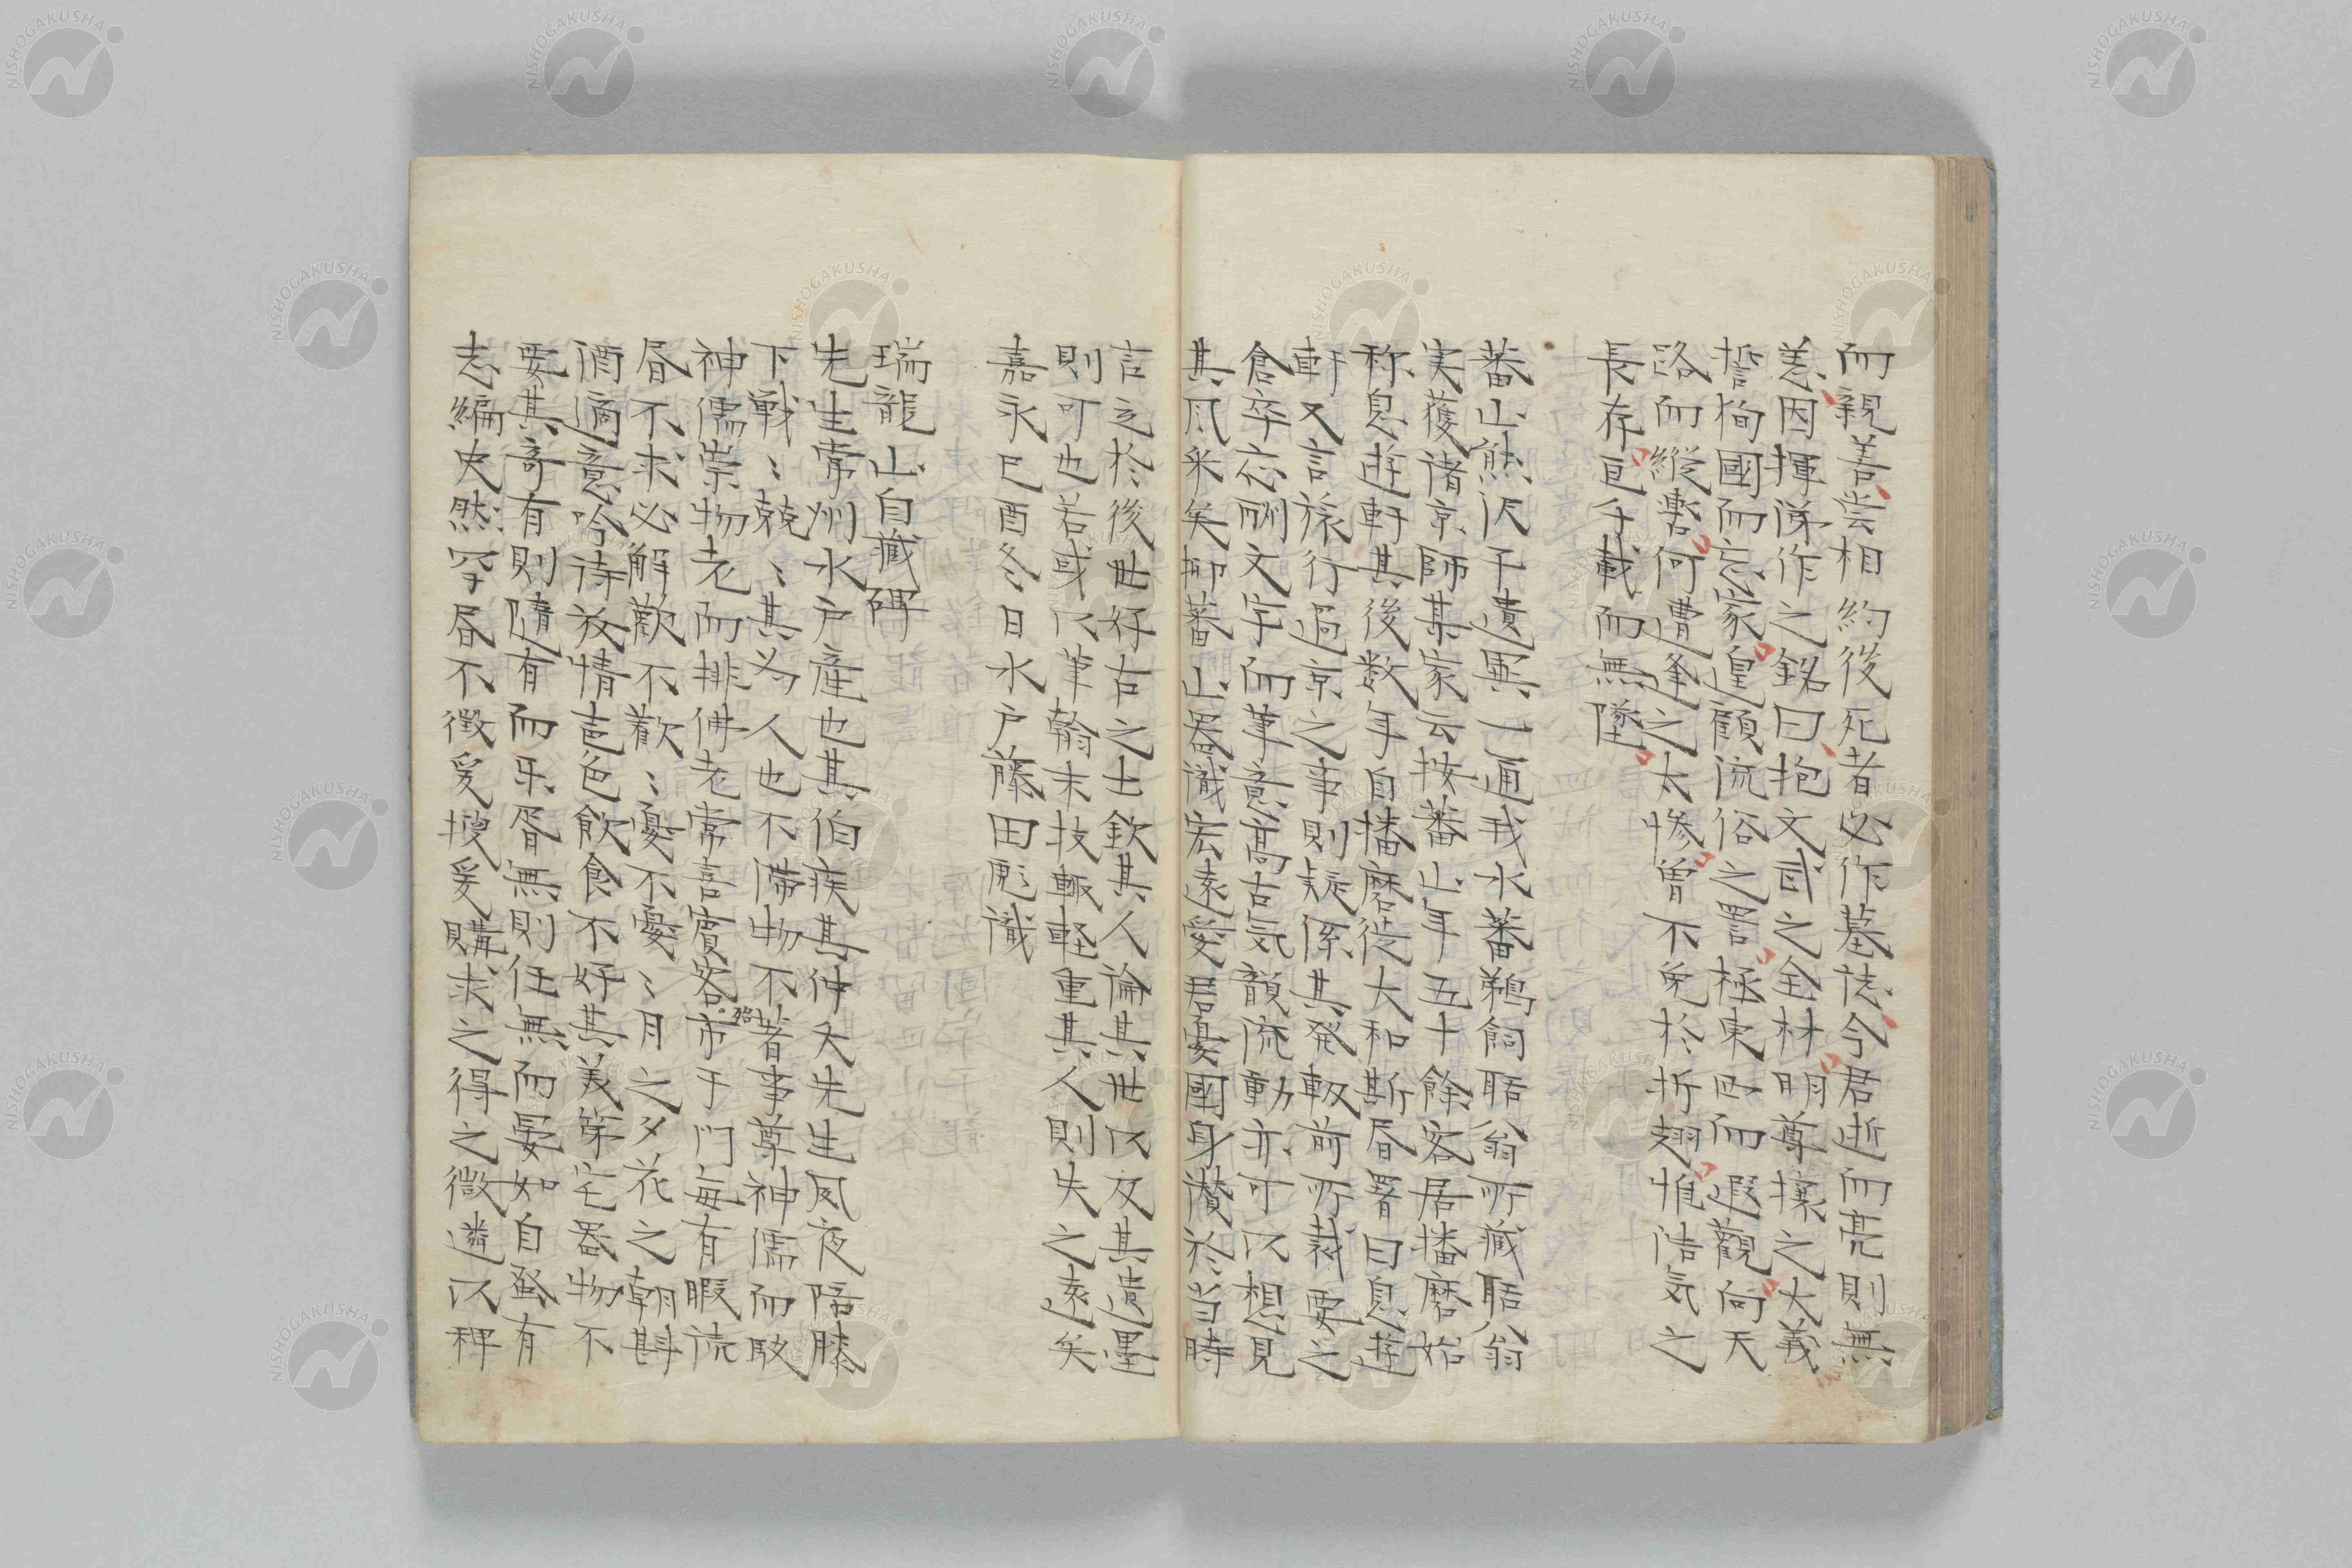 而親善嘗相約後死者必作墓誌今君逝而亮則無
恙因揮涕作之銘曰抱文武之全材明尊攘之大義
誓徇國而忘家遑顧流俗之詈極東西而遐觀向天
路而縱轡何遭逢之太慘曾不免於折翅惟浩気之
長存亘千載而無墜
蕃山熊沢子遺墨一通我水蕃鵜飼聒翁所蔵聒翁
実獲諸京師某家云按蕃山年五十餘客居播磨始
称息遊軒其後数年自播磨徙大和斯昏署曰息遊
軒又言旅行過京之事則疑係其発軔前所裁要之
倉卒亦刪文字而筆意高古気韻流動亦可以想見
其風采矣抑蕃山器識宏遠愛君憂國身讃於当時
言立於後世好古之士欽其人論其世以及其遺墨
則可也若或以筆翰末技輙軽重其人則失之遠矣
嘉永已酉冬日水户藤田彪識
瑞龍山自蔵碑
先生常州水户産也其伯疾其仲夭先生夙夜陪膝
下戦〻兢〻其为人也不滞物不著事尊神儒而駁
神儒崇物老而排佛老常喜賓客殆市于门毎有暇読
昏不求必解歡不歡〻憂不憂〻月之夕花之朝斟
酒適意吟詩放情声色飲食不好其美第宅器物不
要其奇有則隨有而乐胥無則任無而晏如自蚤有
志編史然罕昏不徴爰捜爰購求之得之微遴以稗